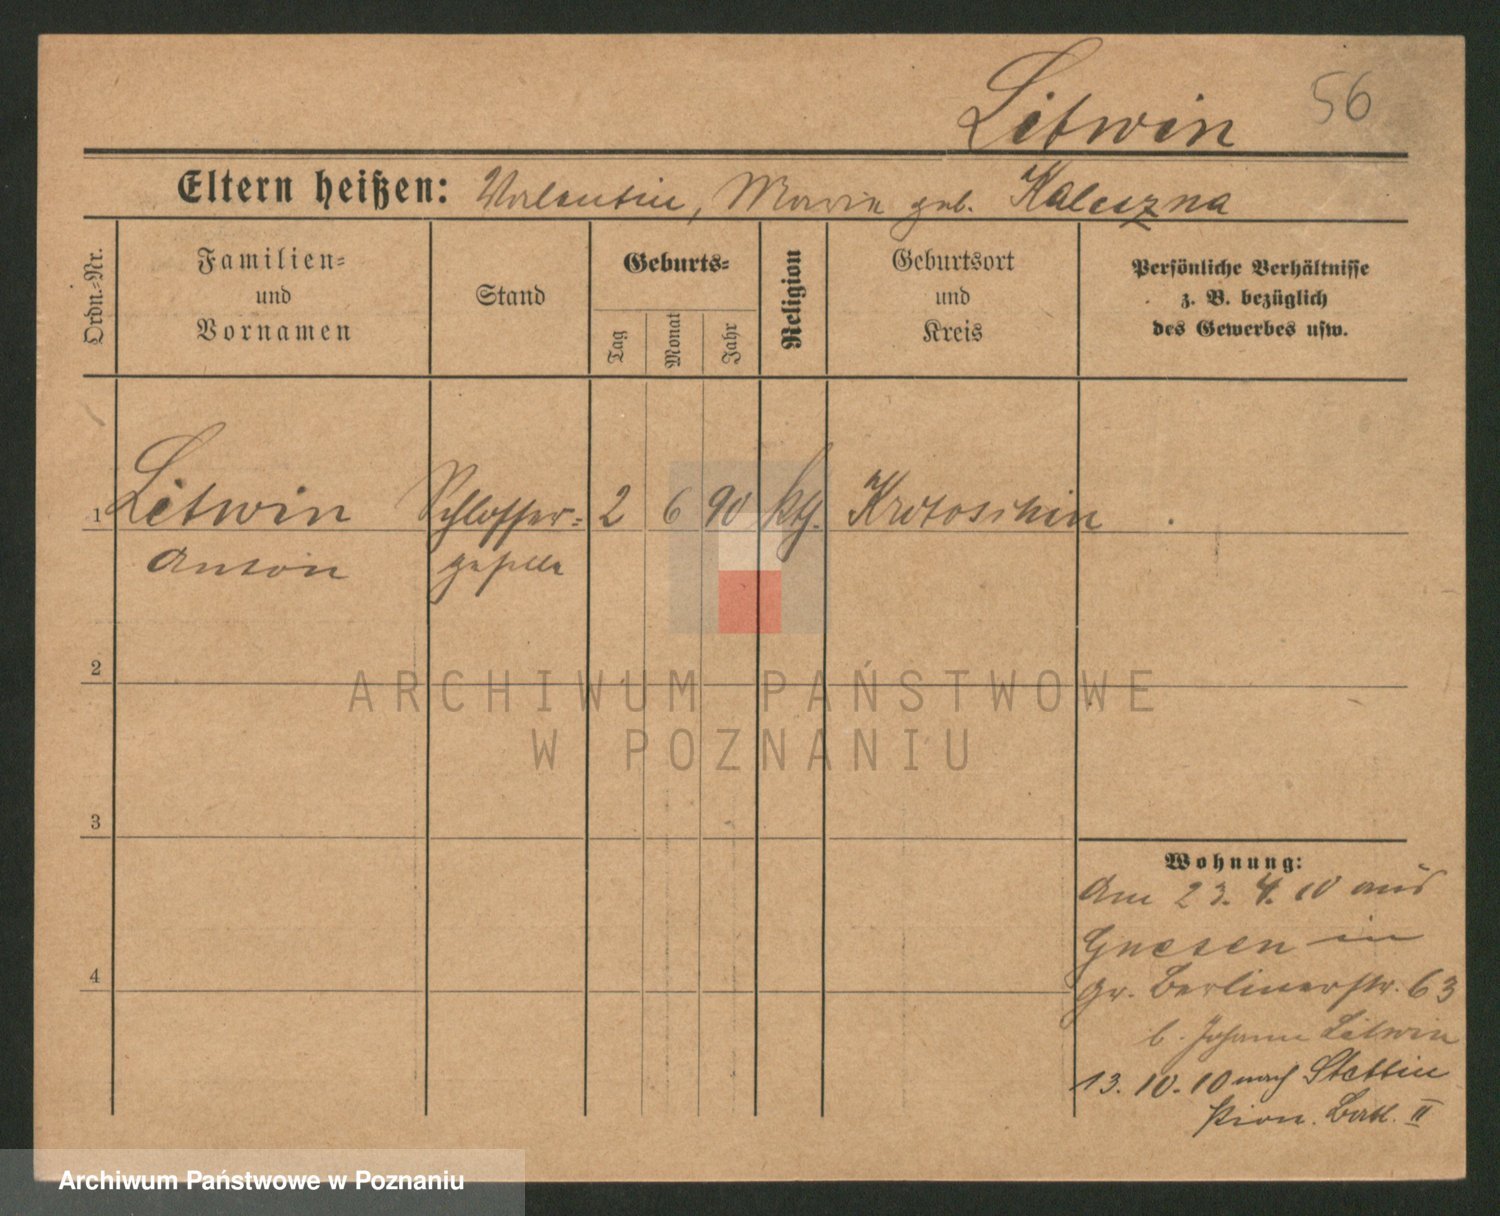 Litwin 56
Eltern heißen: Valentin, Maria geb. Kaluzna
Ordn.-Nr.
Familien-
und
Vornamen
Stand
Geburts-
Tag
Monat
Jahr
Religion
Geburtsort
und
Kreis
Persönliche Verhältnisse
z. B. bezüglich
des Gewerbes usw.
1 Litwin Schlosser- 2 6 90 kth. Krotoschin
Anton geselle
2
3
4
Wohnung:
Am 23. 4. 10 aus
Gnesen in
Gr. Berlinerstr. 63
b. Johann Litwin
13. 10. 10 nach Stettin
Pion. Batl. II
ARCHIWUM PAŃSTWOWE
W POZNANIU
Archiwum Państwowe w Poznaniu